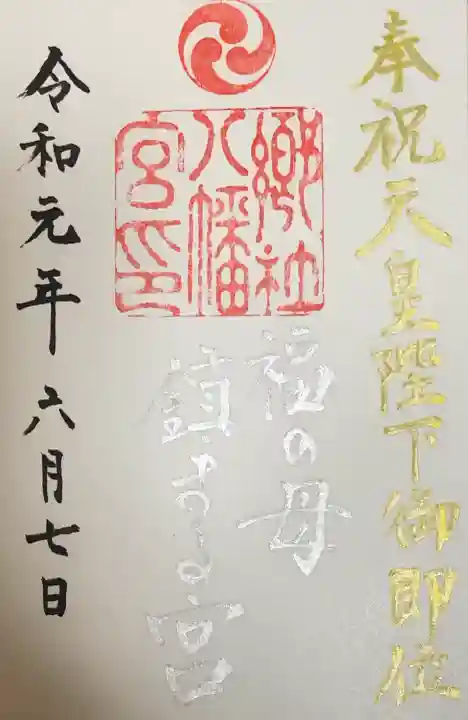 奉祝天皇陛下御即位
郷社
八幡
宮印
福の母
鎮まる宮
令和元年六月七日